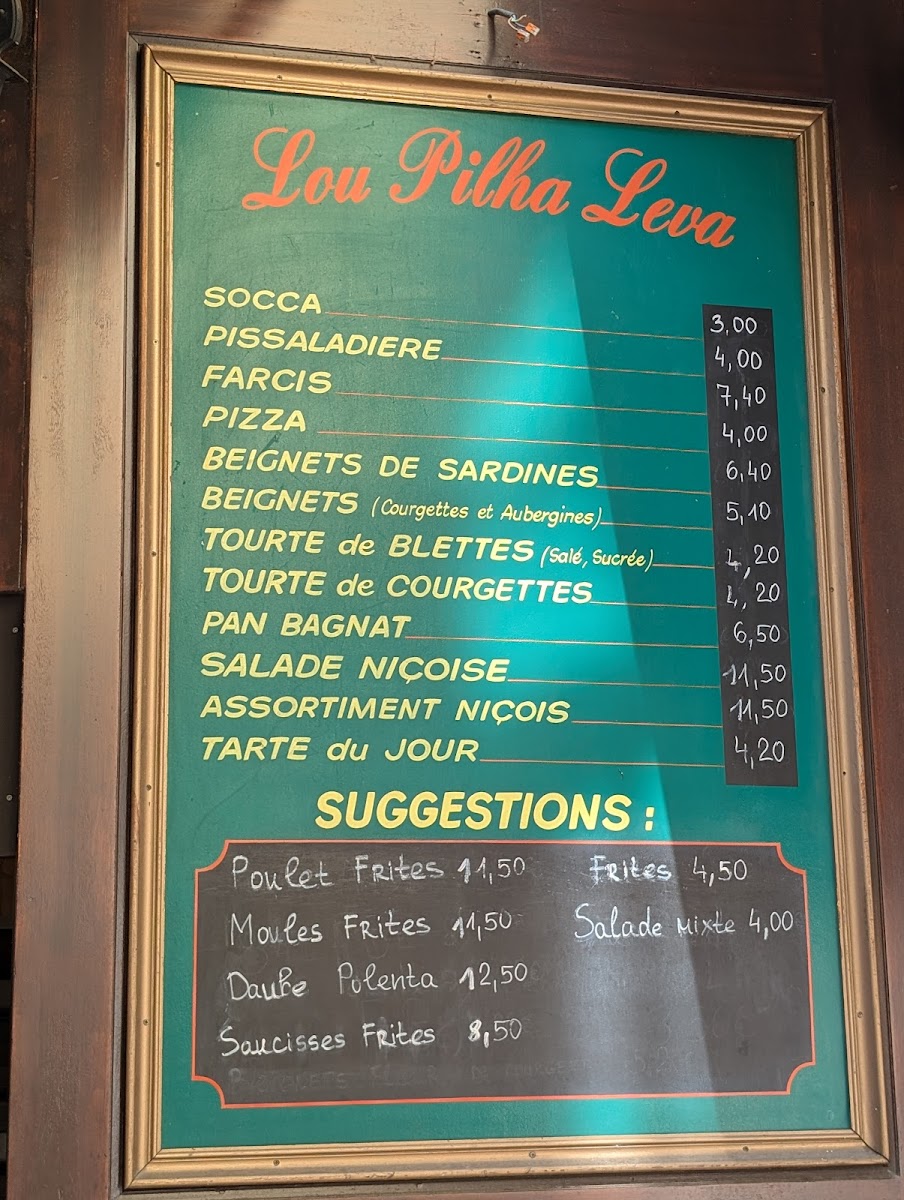 Lou Pilha Leva
SOCCA 3,00
PISSALADIERE 4,00
FARCIS 7,40
PIZZA 4,00
BEIGNETS DE SARDINES 6,40
BEIGNETS (Courgettes et Aubergines) 5,10
TOURTE de BLETTES (Salé, Sucrée) 4,20
TOURTE de COURGETTES 4,20
PAN BAGNAT 6,50
SALADE NIÇOISE 11,50
ASSORTIMENT NIÇOIS 11,50
TARTE du JOUR 4,20
SUGGESTIONS :
Poulet Frites 11,50
Moules Frites 11,50
Daube Polenta 12,50
Saucisses Frites 8,50
Frites 4,50
Salade Mixte 4,00